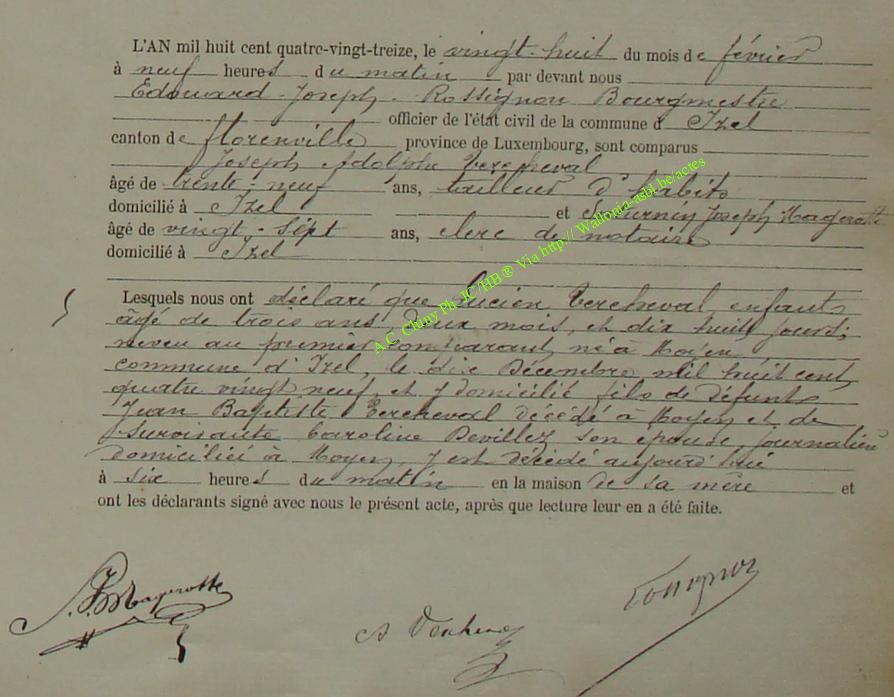 L'AN mil huit cent quatre-vingt-treize, le vingt-huit du mois de février
à neuf heures du matin par devant nous
Edouard-Joseph Rossignon Bourgmestre
officier de l'état civil de la commune d'Izel
canton de Florenville province de Luxembourg, sont comparus
Joseph Adolphe Vercheval
âgé de trente-neuf ans, tailleur d'habits
domicilié à Izel et Joseph Magerotte
âgé de vingt-sept ans, clerc de notaire
domicilié à Izel
Lesquels nous ont déclaré que Lucien Vercheval, enfant
âgé de trois ans deux mois, et dix huit jours,
neveu au premier comparant, né à Moyen
commune d'Izel, le dix Décembre mil huit cent
quatre vingt neuf, et y domicilié fils de défunt
Jean Baptiste Vercheval décédé à Moyen et de
survivante Caroline Devillez son épouse, journalière
domiciliée à Moyen, y est décédé aujourd'hui
à six heures du matin en la maison de sa mère et
ont les déclarants signé avec nous le présent acte, après que lecture leur en a été faite.
A.C Chiny Ph JC/HB® Via http:// Wallonia-asbl.be/actes
J. Magerotte
A Verchev
Rossignon